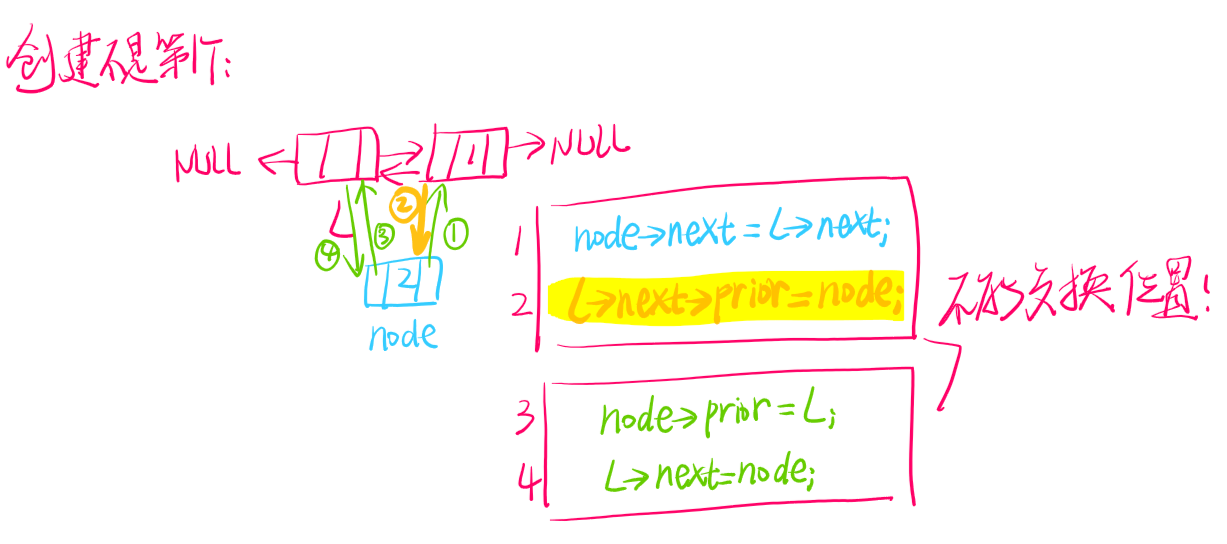 创建不是第1个:
NULL
NULL
1
2
①
③
L
④
2
node
1 node→next=L→next;
2 L→next→prior=node;
不能交换位置!
3 node→prior=L;
4 L→next=node;